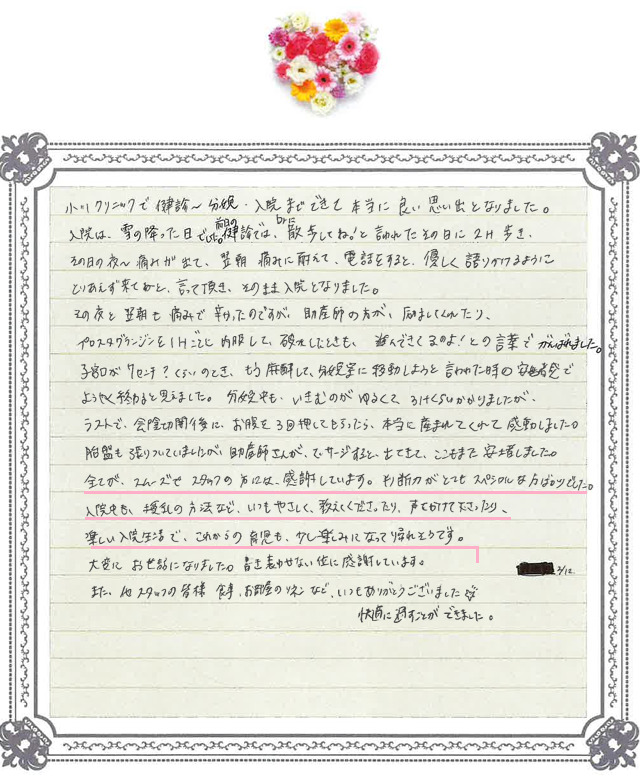 小川クリニックで健診〜分娩・入院までできて本当に良い思い出となりました。
入院は、雪の降った日でした。前日の健診では、Drに散歩してね!と言われたその日に2H歩き、
その日の夜〜痛みが出て、翌朝痛みに耐えて、電話をすると、優しく語りかけるように
とりあえず来てねと、言って頂き、そのまま入院となりました。
その夜と翌朝も痛みで辛かったのですが、助産師の方が、励ましてくれたり、
プロスタグランジンを1Hごとに内服して、破水したときも、進んできてるのよ!との言葉でがんばれました。
子宮口が7センチ?くらいのとき、もう麻酔して、分娩室に移動しようと言われた時の安心感で
ようやく終わると思えました。分娩中も、いきむのがゆるくて3Hくらいかかりましたが、
ラストで、会陰切開後に、お腹を3回押してもらったら、本当に産まれてくれて感動しました。
胎盤も張りついていましたが、助産師さんが、マッサージすると、出てきて、ここもまた安堵しました。
全てが、スムーズでスタッフの方には、感謝しています。判断力がとてもスペシャルな方ばかりでした。
入院中も、授乳の方法など、いつもやさしく、教えてくださったり、声をかけて下さったり、
楽しい入院生活で、これからの育児も、少し楽しみになって帰れそうです。
大変にお世話になりました。書き表わせない位に感謝しています。 2/12
また、他スタッフの皆様 食事、お部屋のリネンなど、いつもありがとうございました
快適に過すことができました。